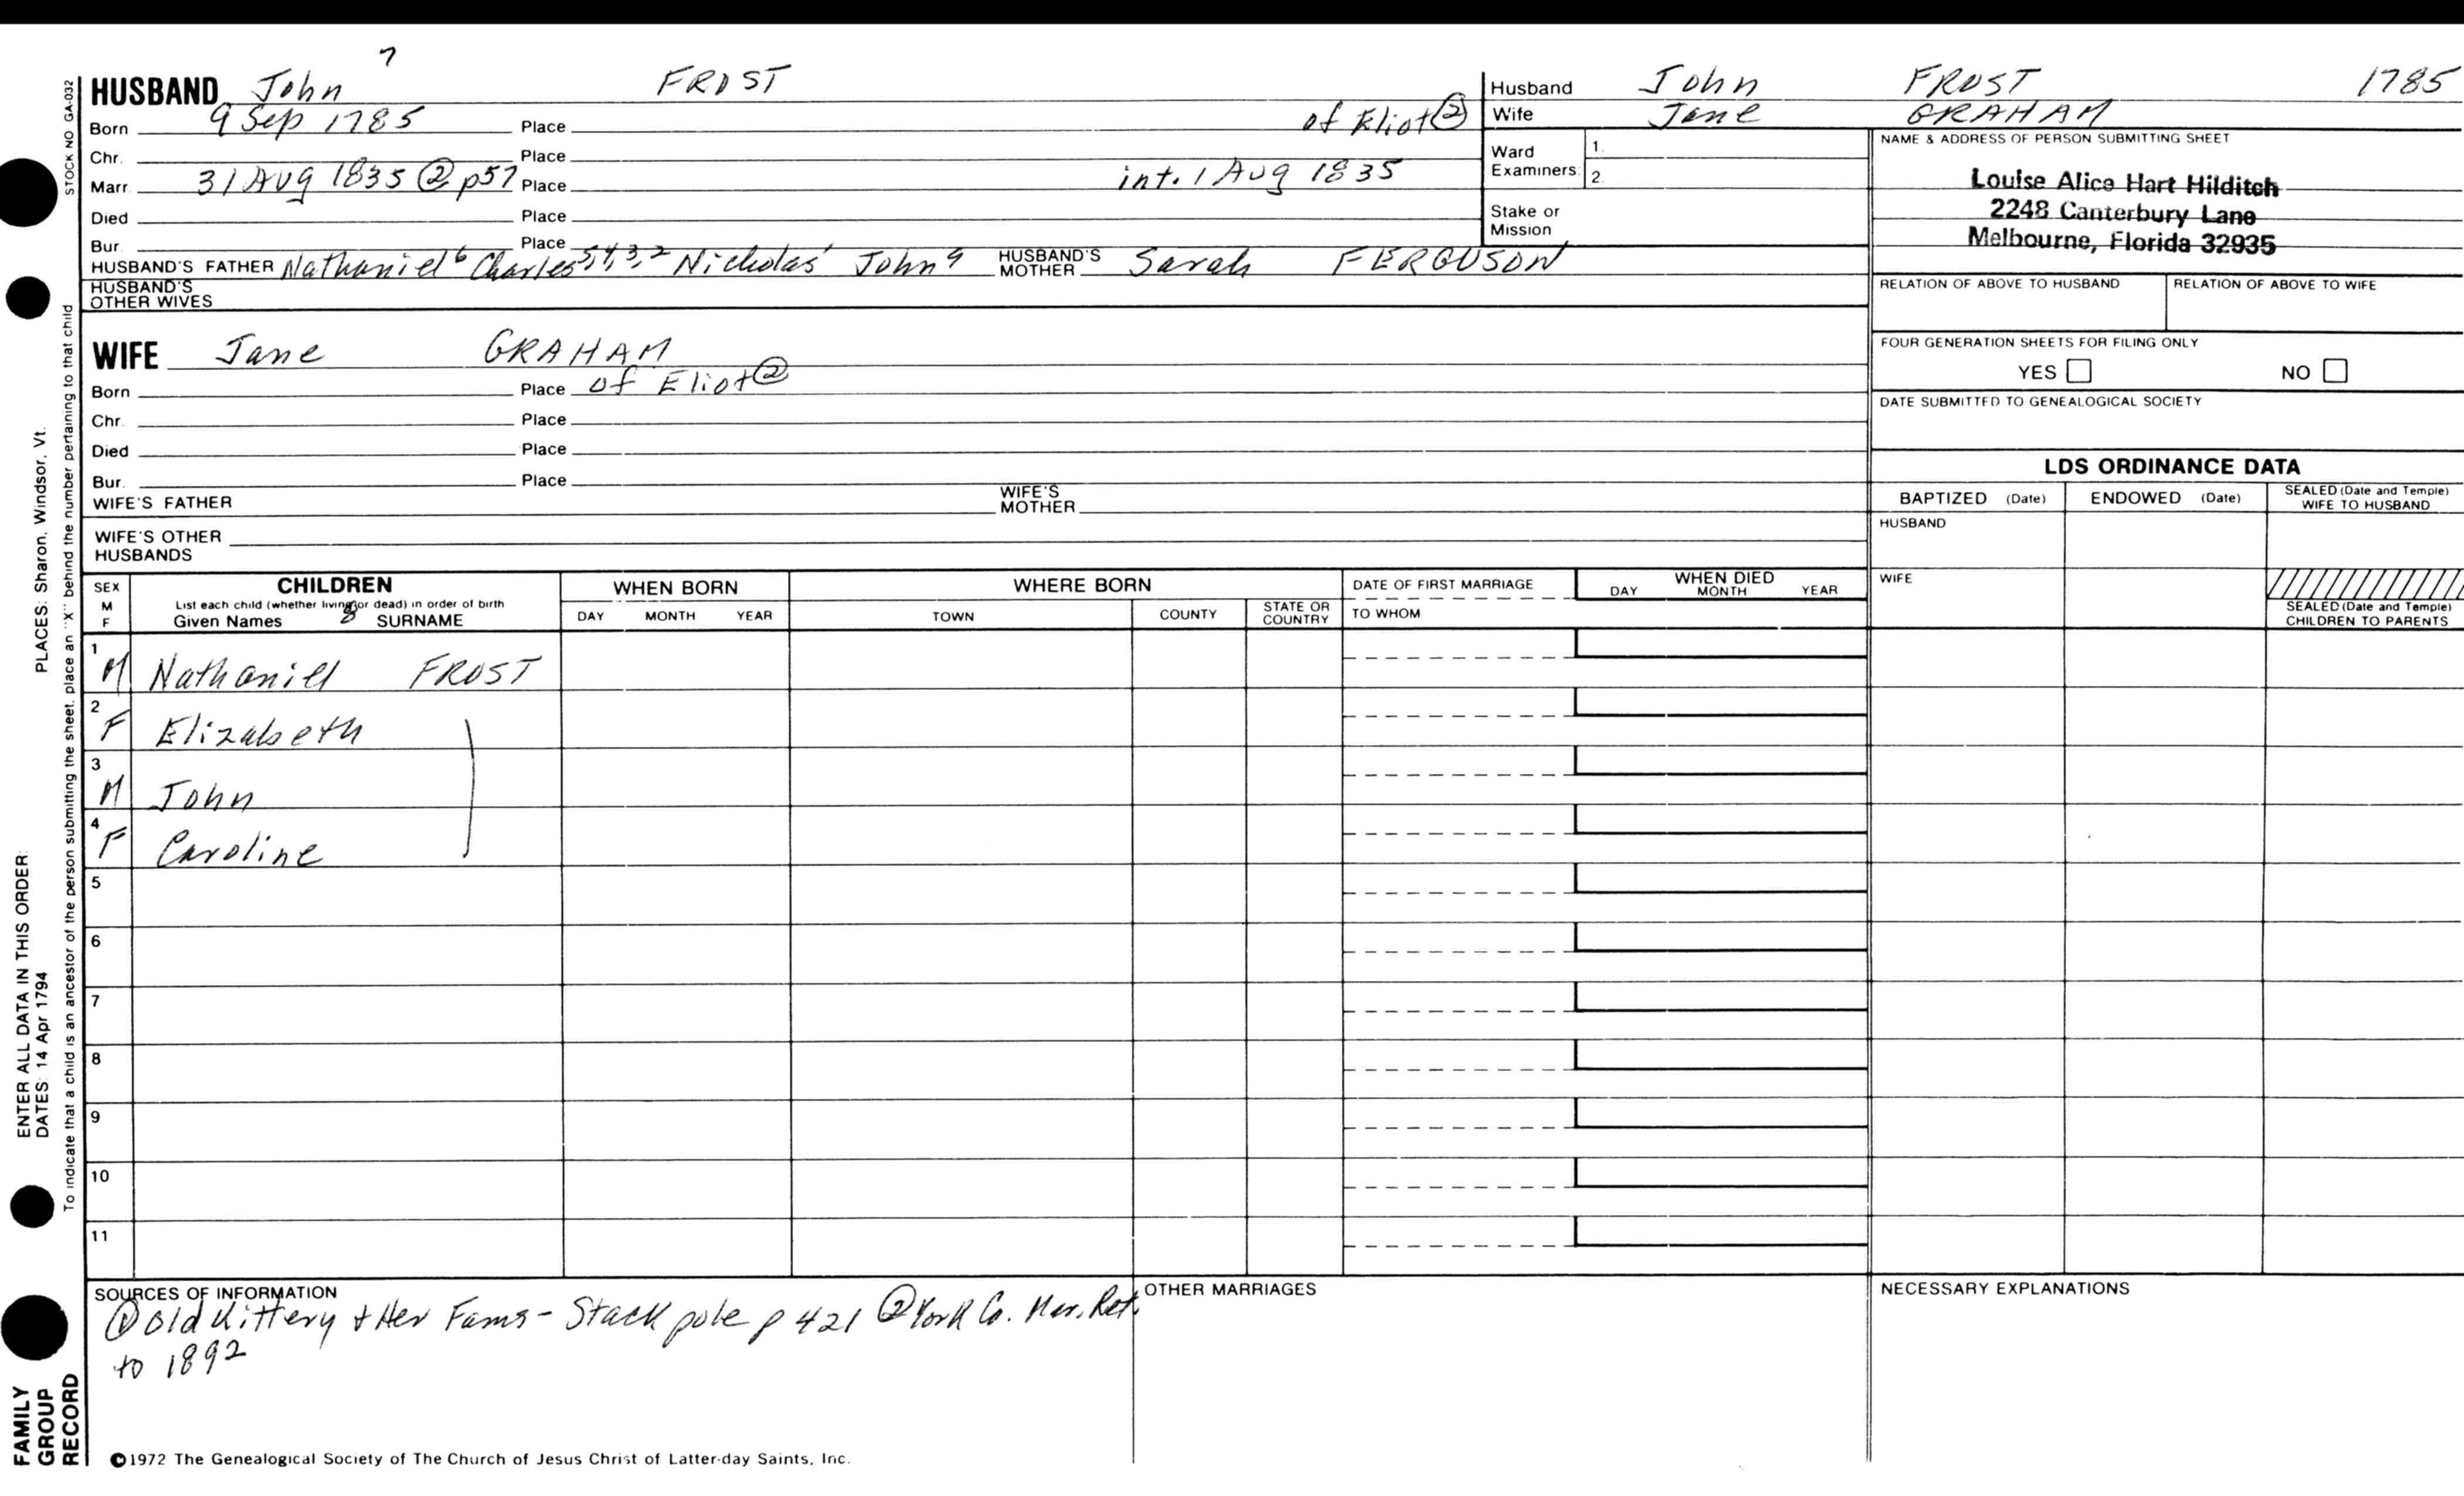 7
HUSBAND John FROST
Born 9 Sep 1785 Place of Eliot ②
Chr. Place
Marr. 31 Aug 1835 ② p57 Place int. 1 Aug 1835
Died Place
Bur. Place
HUSBAND'S FATHER Nathaniel⁶ Charles⁵,⁴,³,² Nicholas¹ John HUSBAND'S MOTHER Sarah FERGUSON
HUSBAND'S OTHER WIVES
WIFE Jane GRAHAM
Born Place of Eliot ②
Chr. Place
Died Place
Bur. Place
WIFE'S FATHER WIFE'S MOTHER
WIFE'S OTHER HUSBANDS
Husband John FROST 1785
Wife Jane GRAHAM
Ward Examiners: 1.
2.
Stake or Mission
NAME & ADDRESS OF PERSON SUBMITTING SHEET
Louise Alice Hart Hilditch
2248 Canterbury Lane
Melbourne, Florida 32935
RELATION OF ABOVE TO HUSBAND RELATION OF ABOVE TO WIFE
FOUR GENERATION SHEETS FOR FILING ONLY
YES NO
DATE SUBMITTED TO GENEALOGICAL SOCIETY
LDS ORDINANCE DATA
BAPTIZED (Date) ENDOWED (Date) SEALED (Date and Temple) WIFE TO HUSBAND
HUSBAND
WIFE
SEALED (Date and Temple) CHILDREN TO PARENTS
SEX M F
CHILDREN
List each child (whether living or dead) in order of birth
Given Names 8 SURNAME
WHEN BORN
DAY MONTH YEAR
WHERE BORN
TOWN COUNTY STATE OR COUNTRY
DATE OF FIRST MARRIAGE
TO WHOM
WHEN DIED
DAY MONTH YEAR
1 M Nathaniel FROST
2 F Elizabeth
3 M John
4 F Caroline
5
6
7
8
9
10
11
SOURCES OF INFORMATION
① Old Kittery & Her Fams - Stackpole p 421 ② York Co. Mar. Ret.
to 1892
OTHER MARRIAGES
NECESSARY EXPLANATIONS
©1972 The Genealogical Society of The Church of Jesus Christ of Latter-day Saints, Inc.
STOCK NO GA-032
To indicate that a child is an ancestor of the person submitting the sheet, place an "X" behind the number pertaining to that child
ENTER ALL DATA IN THIS ORDER:
DATES: 14 Apr 1794 PLACES: Sharon, Windsor, Vt.
FAMILY
GROUP
RECORD